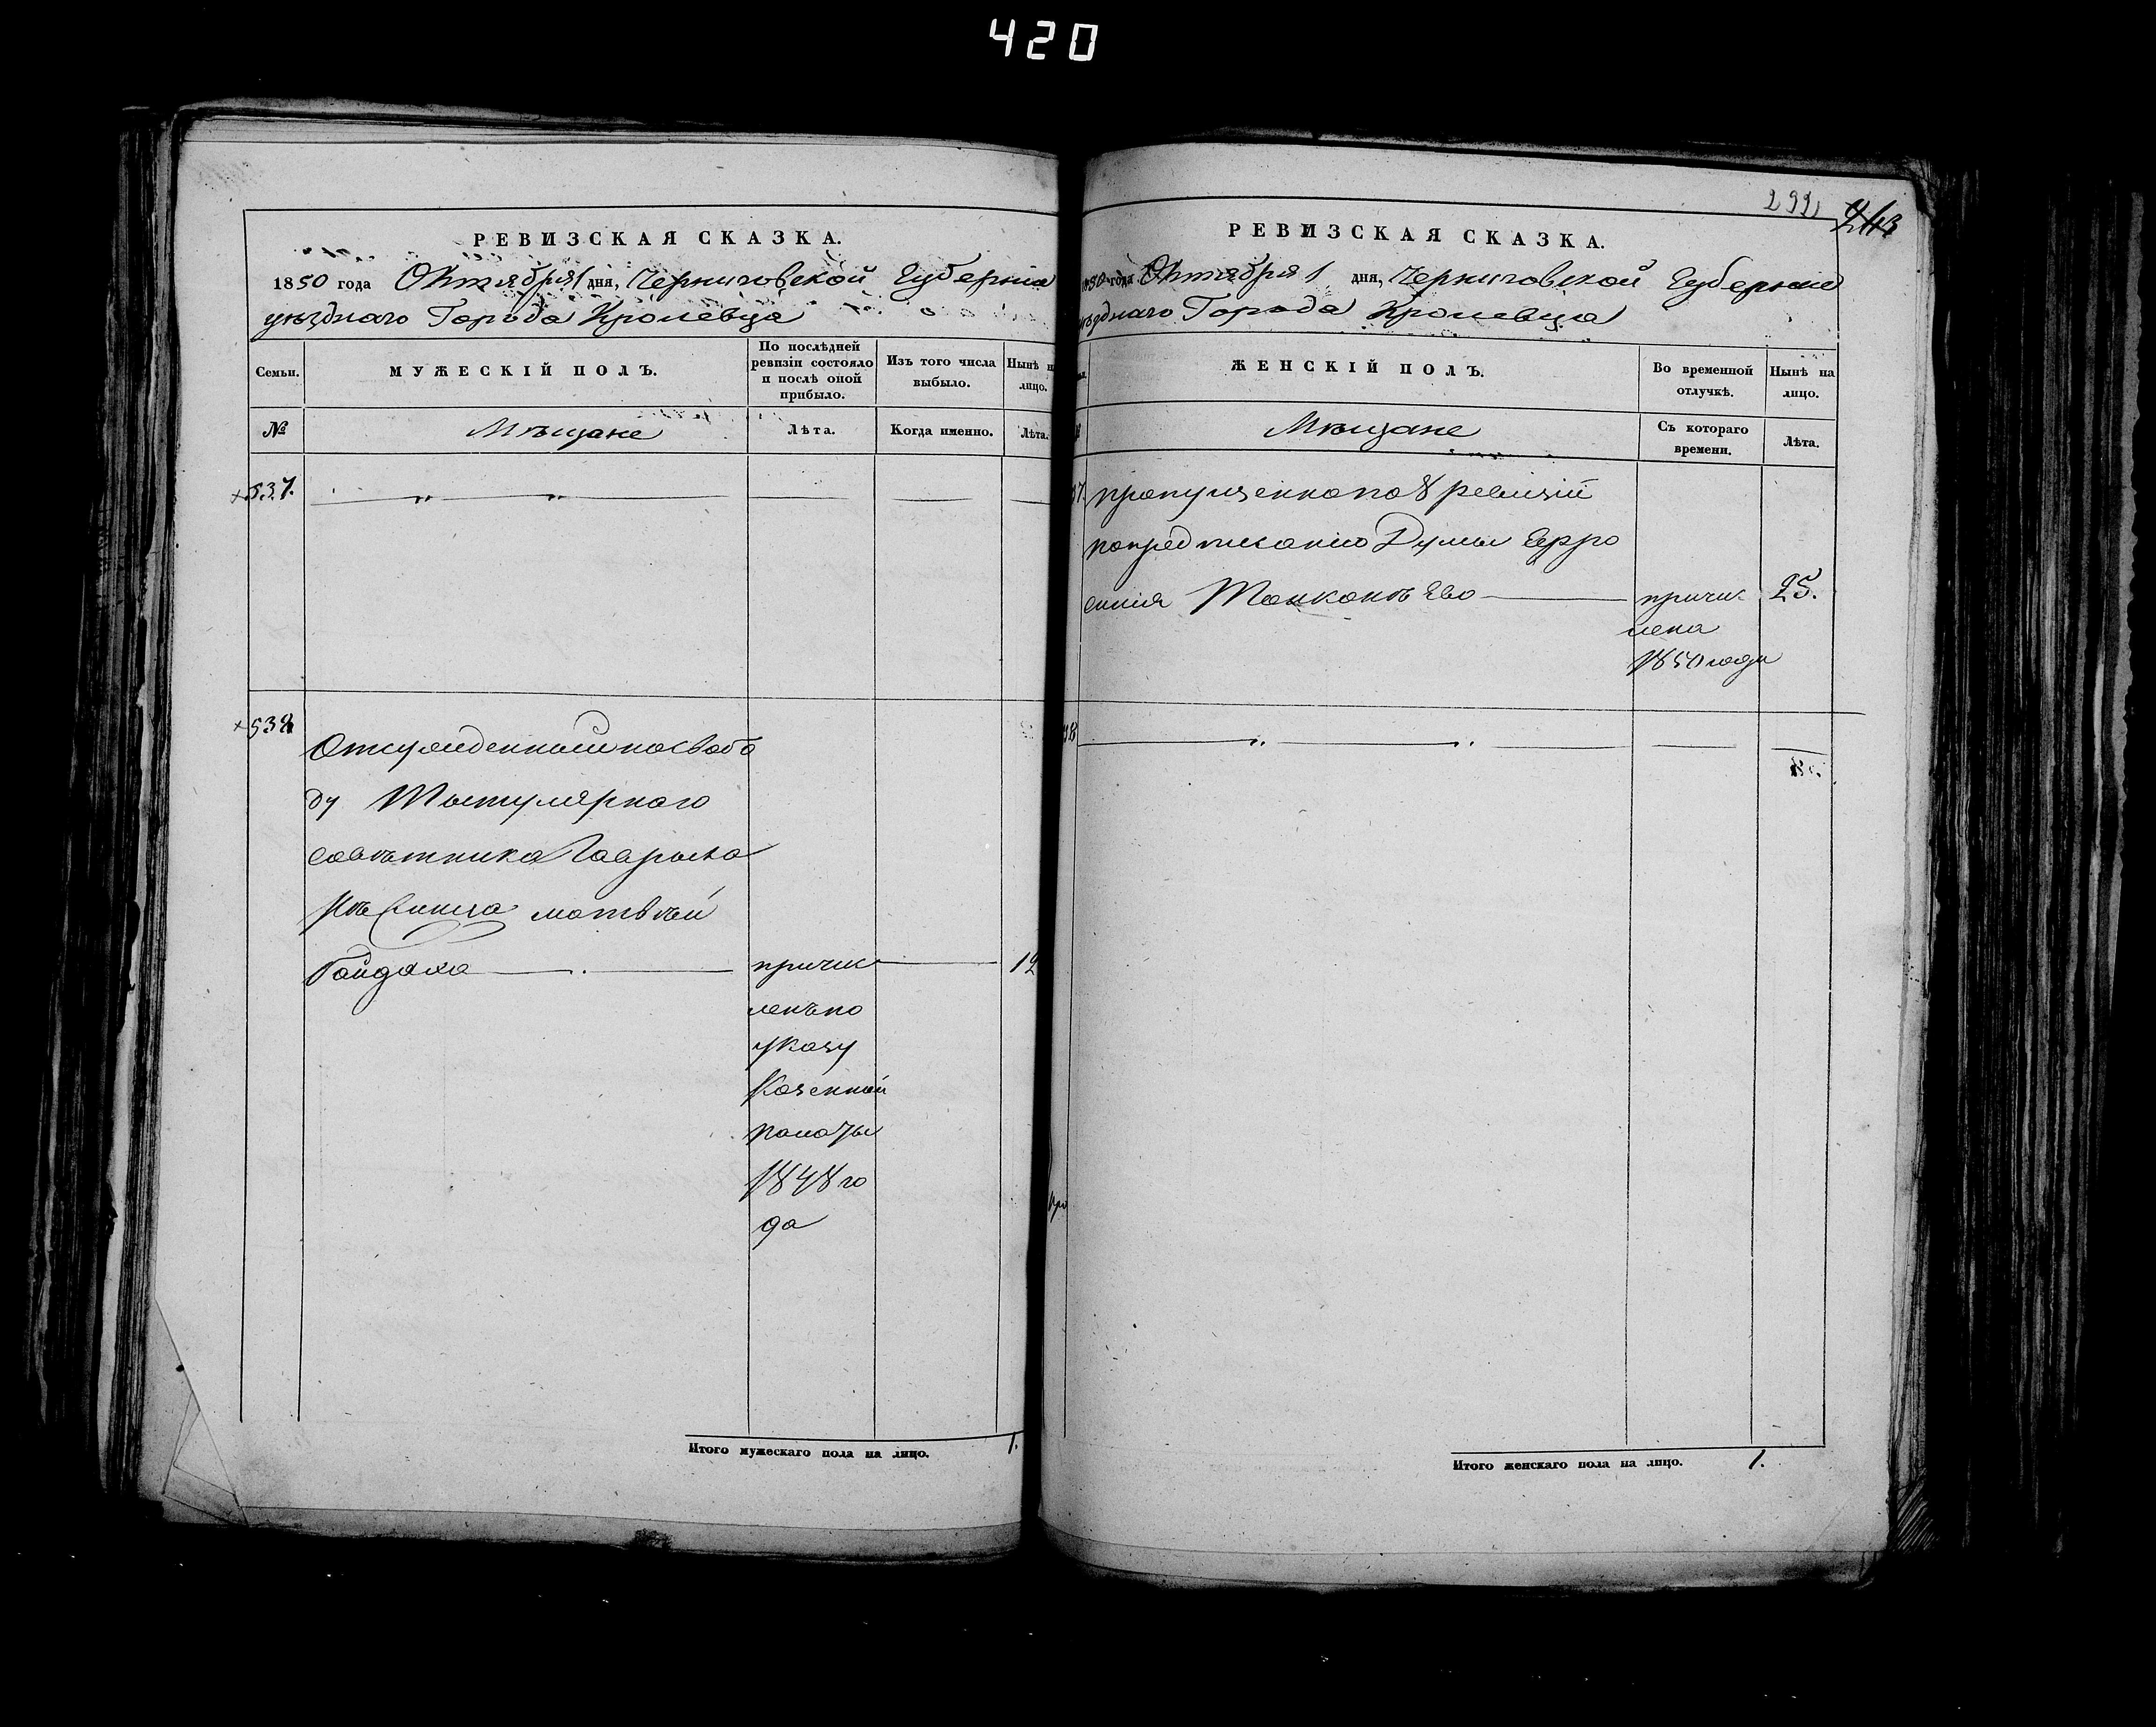 420
РЕВИЗСКАЯ СКАЗКА.
1850 года Октября 1 дня, Черниговской Губерніи
уѣзднаго Города Кролевца
Семьи. МУЖЕСКІЙ ПОЛЪ. По послѣдней ревизіи состояло и послѣ оной прибыло. Изъ того числа выбыло. Нынѣ на лицо.
№ Мѣщане Лѣта. Когда именно. Лѣта.
537.
538
Отсужденный насвобо
ду Титулярнаго
совѣтника Гаврыла
матвѣй
Гайдаха причис 12
ленъ по
указу
Казенной
палаты
1848 го
да
Итого мужескаго пола на лицо. 1.
292 243
РЕВИЗСКАЯ СКАЗКА.
1850 года Октября 1 дня, Черниговской Губерніи
уѣзднаго Города Кролевца
ЖЕНСКІЙ ПОЛЪ. Во временной отлучкѣ. Нынѣ на лицо.
Мѣщане Съ котораго времени. Лѣта.
37. пропущенна по 8 ревизіи
попредписанію Думы Ефро
синия причис 25.
лена
1850 года
38
Итого женскаго пола на лицо. 1.